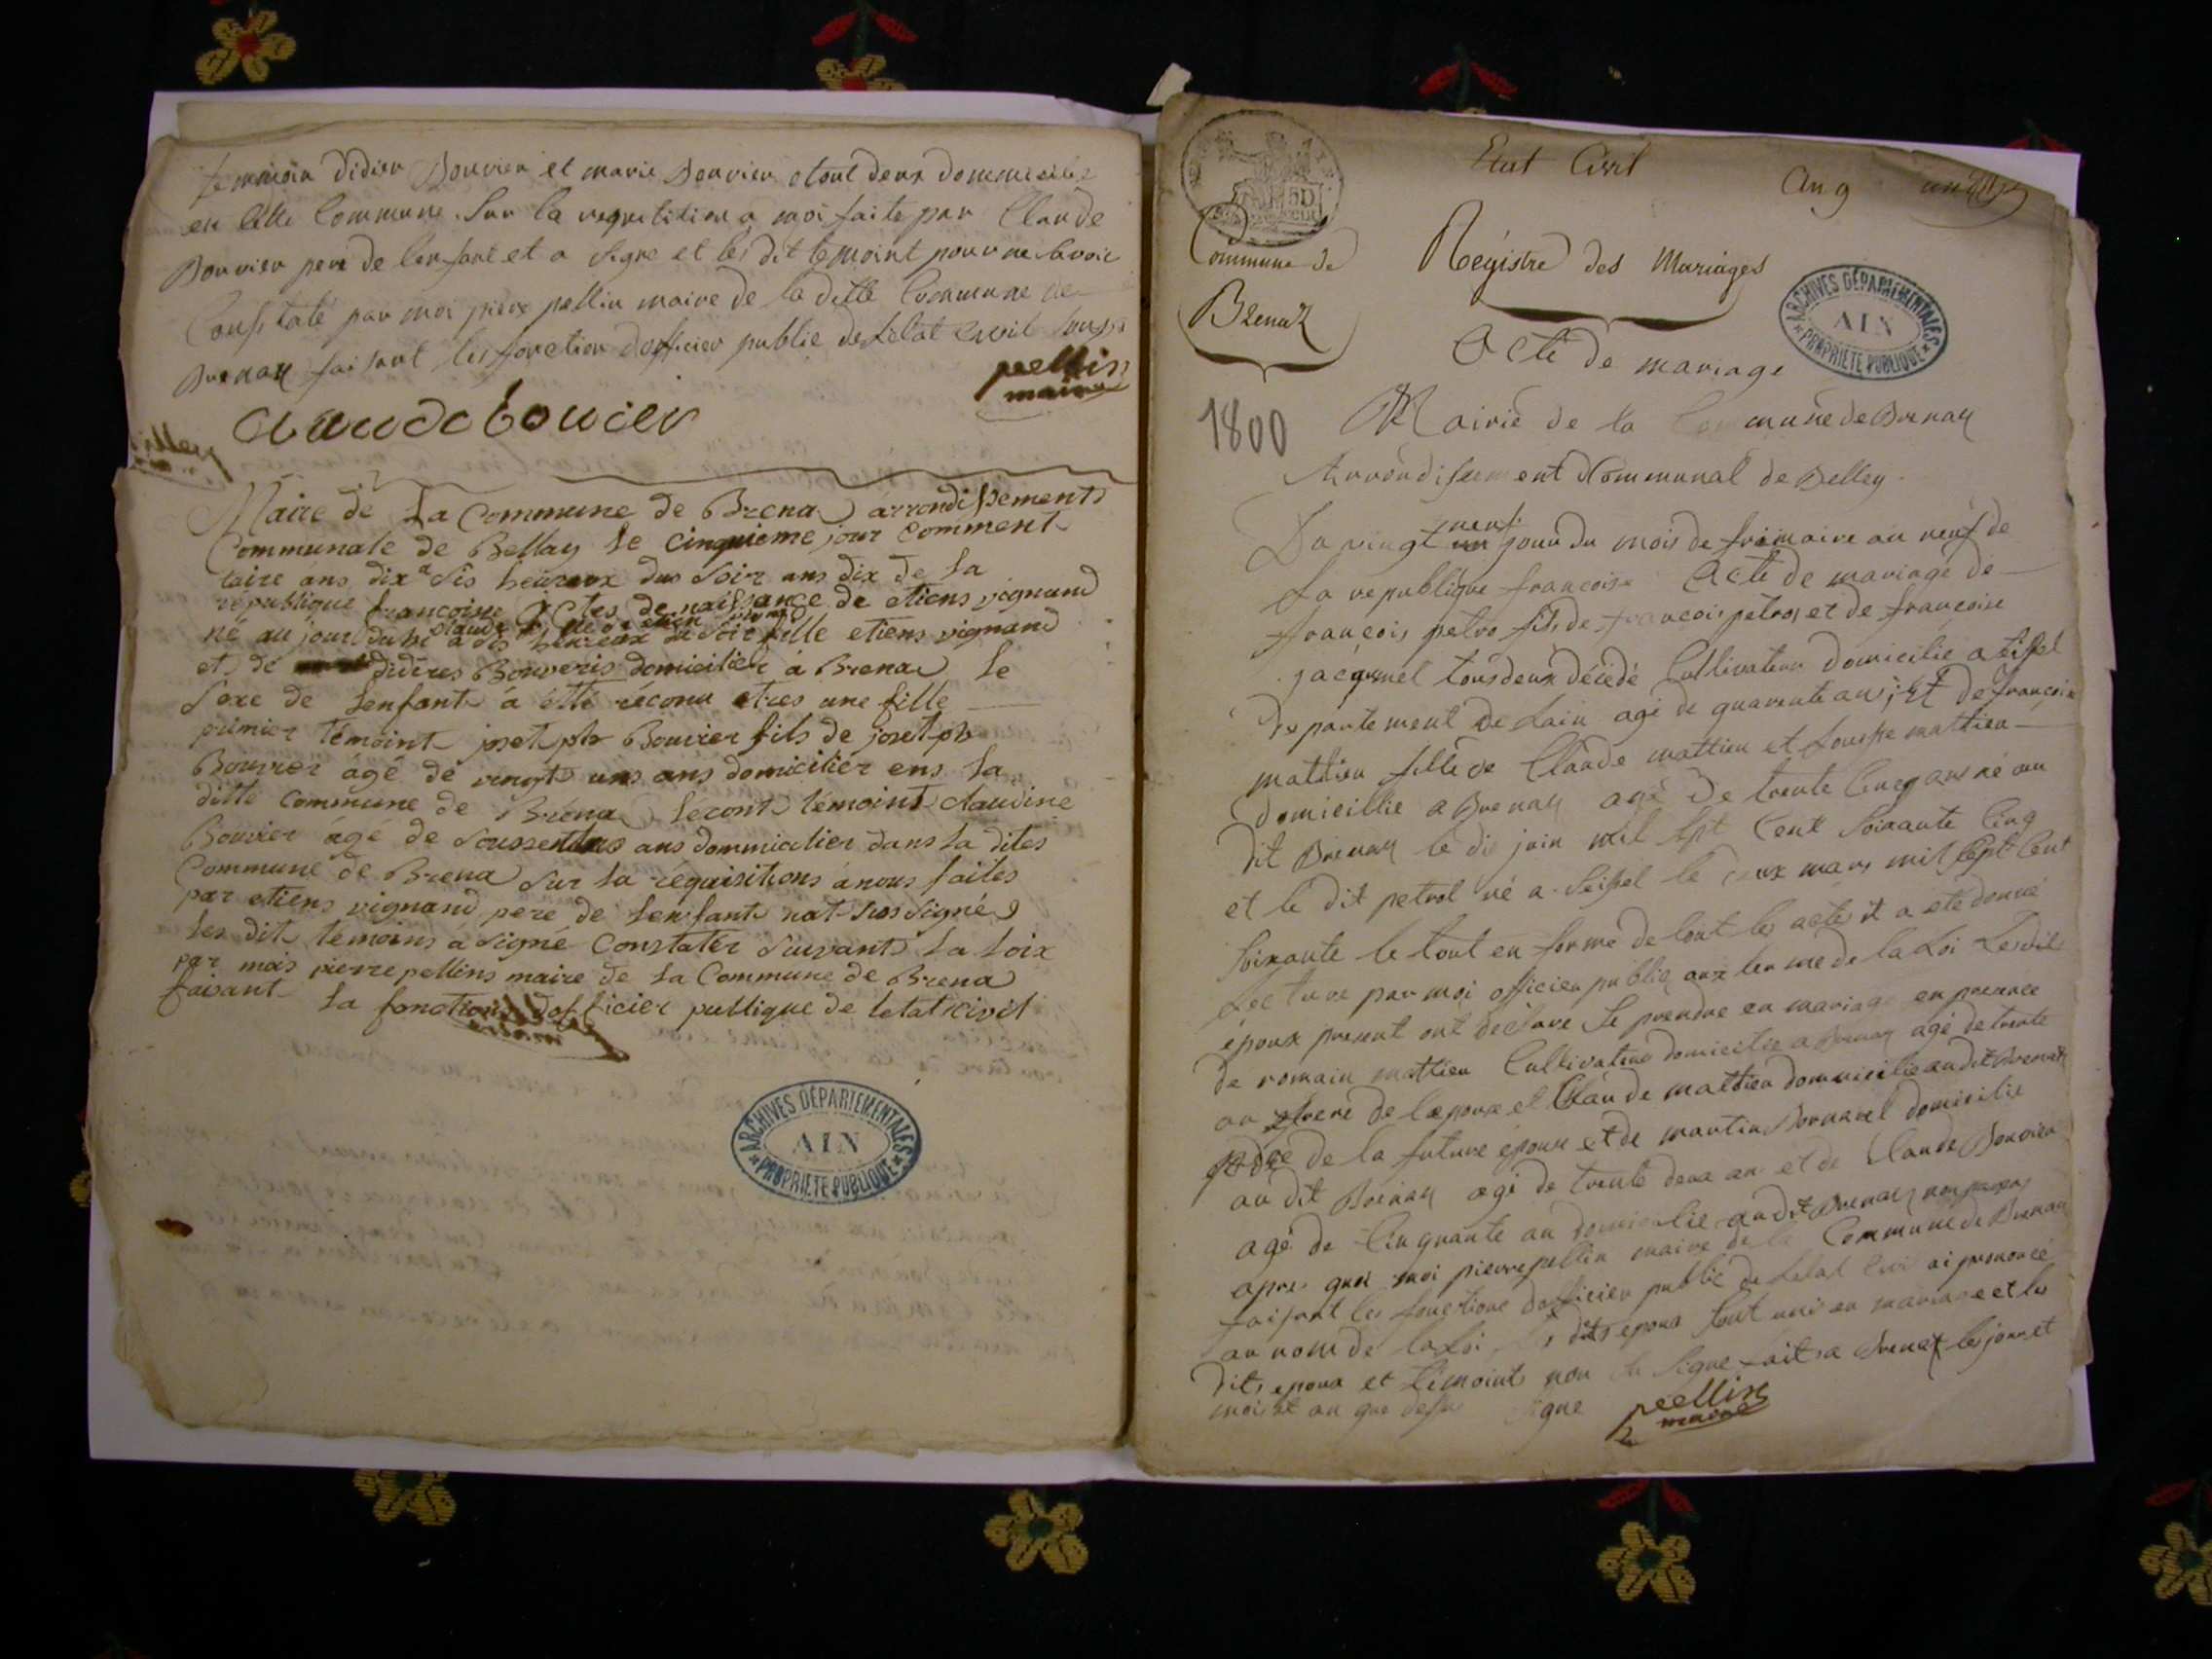 temoin didier Bouvier et marie Bouvier tout deux domiciliés
en cette Commune. Sur la requisition a moi faite par Claude
Bouvier pere de lenfant et a signe et les dit temoint pour ne savoir
Constaté par moi pierre pellin maire de la ditte Commune de
Brenaz faisant les fonction dofficier public de Letat Civil
pellin
maire
claude bouvier
Maire de La Commune de Brena arrondissements
Communale de Bellay le cinquieme jour Comment
taire ans dix a sis heureux du Soir ans dix de la
république francoise Actes de naissance de etiens vignand
né au jourduhi a sis heureux du Soir fille etiens vignand
et de didires Bouveris domicilier à Brena le
Sexe de Lenfant à été réconu etres une fille
primier témoint joset ph Bouvier fils de joset ph
Bouvier agé de vingt uns ans domicilier ens La
ditte Commune de Brena Secont témoint claudine
Bouvier âgé de ans dommicilier dans La dites
Commune de Brena Sur La réquisitions à nous faites
par etiens vignand pere de Lenfant
Les dit temoins à signé Constater Suivants La Loix
par mois pierre pellins maire de La Commune de Brena
faisant
La fonctions dofficier publique de Letat civil
ARCHIVES DÉPARTEMENTALES
AIN
PROPRIÉTÉ PUBLIQUE
Etat Civil
An 9
Commune de
Brenaz
Régistre des Mariages
ARCHIVES DÉPARTEMENTALES
AIN
PROPRIÉTÉ PUBLIQUE
Acte de mariage
1800
Mairie de la Commune de Brenaz
Arrondissement Communal de Belley.
neuf
Du vingt jour du mois de frimaire an neuf de
La republique francoise Acte de mariage de
francois petro fils de francois petro et de francoise
jacqmel tous deux décédé Cultivateur domicilié a
departement de Lain agé de quarente ans; Et de francoise
mattieu fille de Claude mattieu et mattieu
domicillié a Brenaz agé de trente Cinq ans né au
dit Brenaz le dix juin mil sept Cent soixante Cinq
et le dit petrol né a Seissel le mars mil sept Cent
soixante le tout en forme de tout les acte it a eté donné
Lecture par moi officier public aux terme de la Loi Lesdits
epoux present ont declare se prendre en mariage en presence
de romain mattieu Cultivateur domicilié a Brenaz agé de trente
an frere de lepoux et Claude mattieu dommicilié au dit Brenaz
pere de la future épouse et de martin domicilié
au dit Brenaz agé de trente deux an et de Claude Bouvier
agé de Cinquante an domicilié au dit Brenaz
apres quoi moi pierre pellin maire de la Commune de Brenaz
faisant les fonctions dofficier public de Letat Civil ai prononcé
au nom de la Loi dits epoux sont unis en mariage et les
dits epoux et temoints non signe fait a Brenaz les jour et
mois et an que dessus signe
pellin
maire